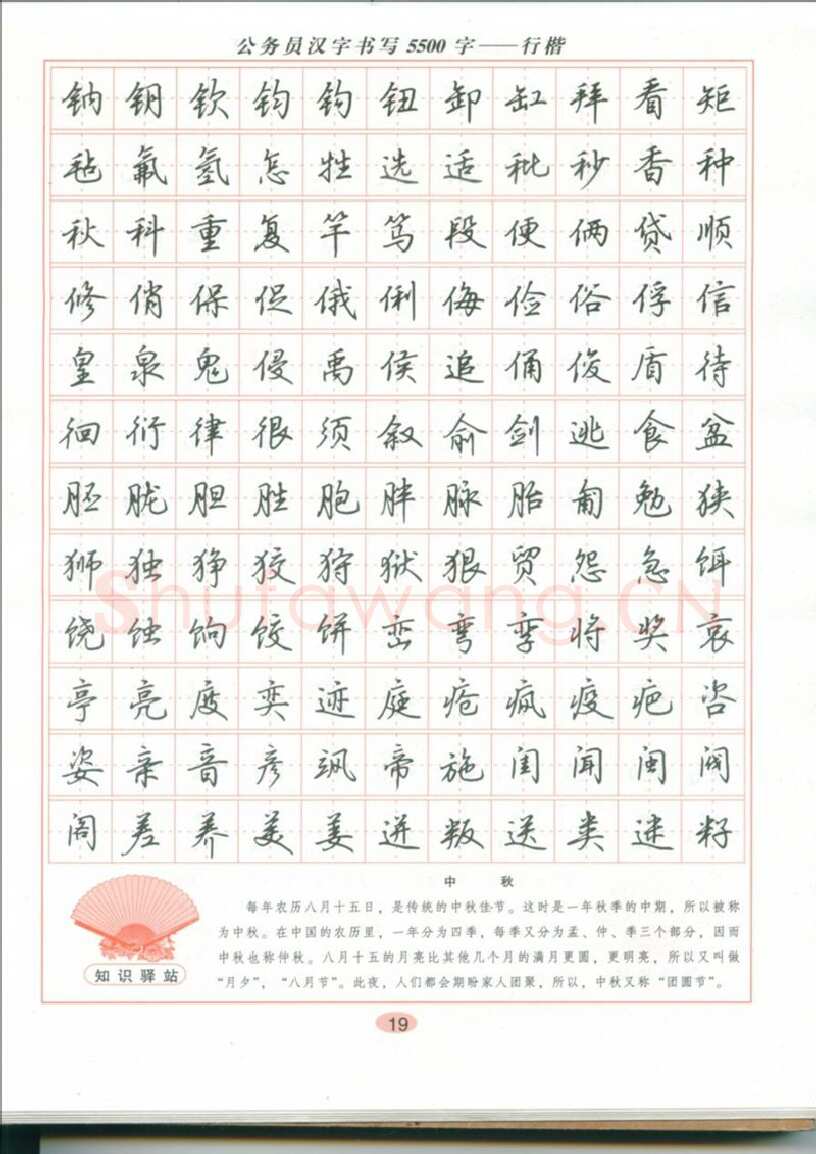 公务员汉字书写5500字——行楷
钠 钢 钦 钧 钩 钮 卸 缸 拜 看 矩
毡 氟 氢 怎 牲 选 适 秕 秒 香 种
秋 科 重 复 竿 笃 段 便 俩 贷 顺
修 俏 保 促 俄 俐 侮 俭 俗 俘 信
皇 泉 鬼 侵 禹 侯 追 俑 俊 盾 待
徊 衍 律 很 须 叙 俞 剑 逃 食 盆
胚 胧 胆 胜 胞 胖 脉 胎 匍 勉 狭
狮 独 狰 狡 狩 狱 狠 贸 怨 急 饵
饶 蚀 饷 饺 饼 峦 弯 孪 将 奖 哀
亭 亮 度 奕 迹 庭 疮 疯 疫 疤 咨
姿 亲 音 彦 飒 帝 施 闺 闻 闽 阀
阁 差 养 美 姜 迸 叛 送 类 迷 籽
Shufawang.CN
中 秋
每年农历八月十五日，是传统的中秋佳节。这时是一年秋季的中期，所以被称
为中秋。在中国的农历里，一年分为四季，每季又分为孟、仲、季三个部分，因而
中秋也称仲秋。八月十五的月亮比其他几个月的满月更圆，更明亮，所以又叫做
“月夕”，“八月节”。此夜，人们都会期盼家人团聚，所以，中秋又称“团圆节”。
知识驿站
19